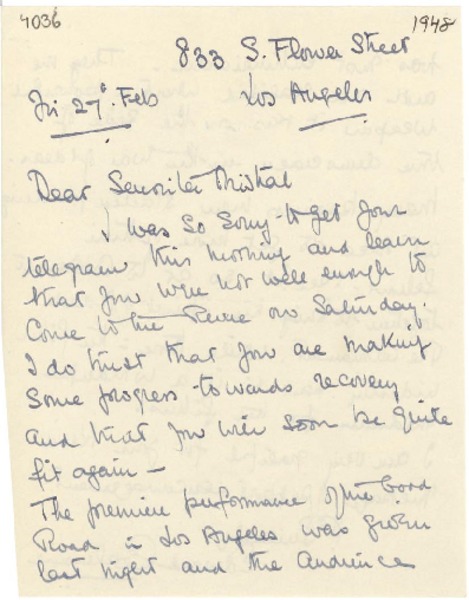 4036
1948
833 S. Flower Street
Fri 27° Feb
Los Angeles
Dear Senorita Mistral
I was so sorry to get your
telegram this morning and learn
that you were not well enough to
come to the Revue on Saturday.
I do trust that you are making
some progress towards recovery
and that you will soon be quite
fit again —
The premiere performance of the Good
Road in Los Angeles was given
last night and the audience